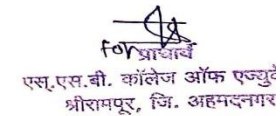 For प्राचार्य
एस्.एस.बी. कॉलेज ऑफ एज्यु
श्रीरामपूर, जि. अहमदनगर